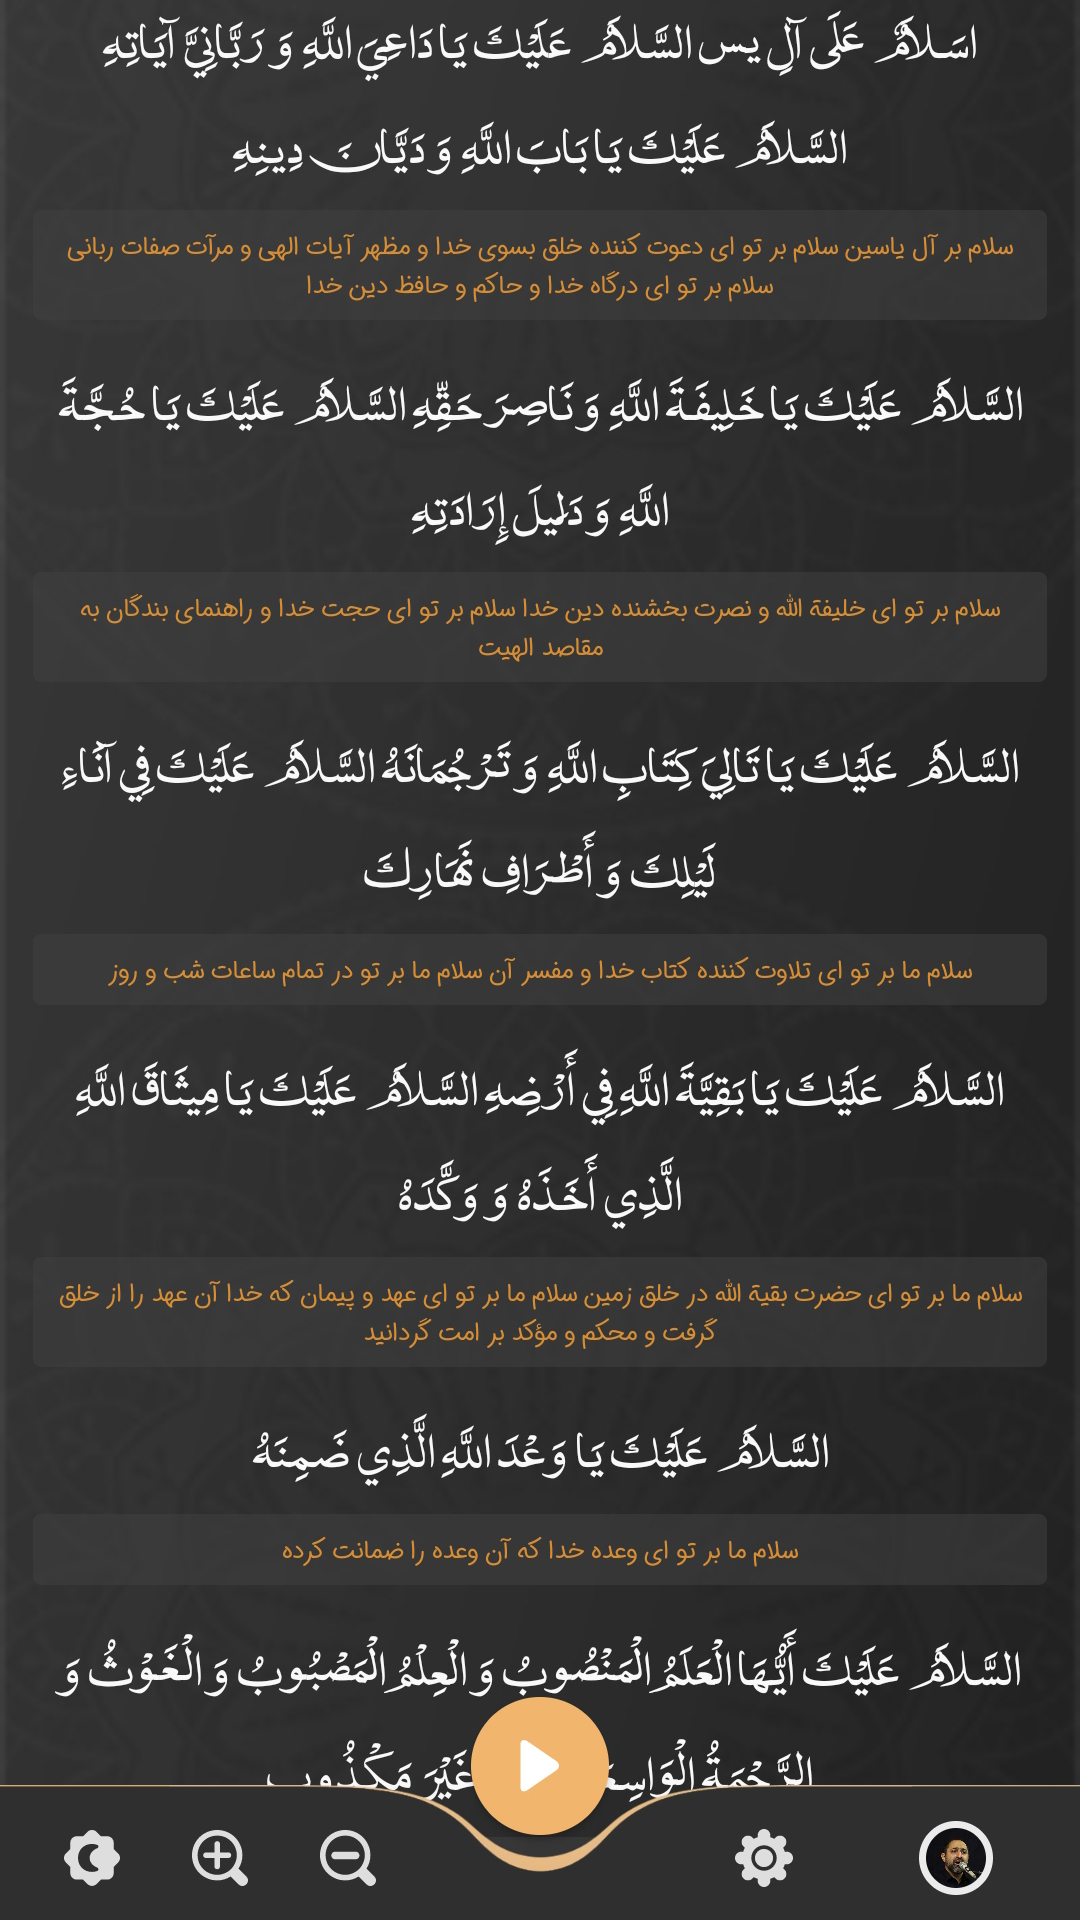 اسَلاَمٌ عَلَى آلِ يس السَّلاَمُ عَلَيْكَ يَا دَاعِيَ اللَّهِ وَ رَبَّانِيَّ آيَاتِهِ
السَّلاَمُ عَلَيْكَ يَا بَابَ اللَّهِ وَ دَيَّانَ دِينِهِ
سلام بر آل یاسین سلام بر تو ای دعوت کننده خلق بسوی خدا و مظهر آیات الهی و مرآت صفات ربانی
سلام بر تو ای درگاه خدا و حاکم و حافظ دین خدا
السَّلاَمُ عَلَيْكَ يَا خَلِيفَةَ اللَّهِ وَ نَاصِرَ حَقِّهِ السَّلاَمُ عَلَيْكَ يَا حُجَّةَ
اللَّهِ وَ دَلِيلَ إِرَادَتِهِ
سلام بر تو ای خلیفة الله و نصرت بخشنده دین خدا سلام بر تو ای حجت خدا و راهنمای بندگان به
مقاصد الهیت
السَّلاَمُ عَلَيْكَ يَا تَالِيَ كِتَابِ اللَّهِ وَ تَرْجُمَانَهُ السَّلاَمُ عَلَيْكَ فِي آنَاءِ
لَيْلِكَ وَ أَطْرَافِ نَهَارِكَ
سلام ما بر تو ای تلاوت کننده کتاب خدا و مفسر آن سلام ما بر تو در تمام ساعات شب و روز
السَّلاَمُ عَلَيْكَ يَا بَقِيَّةَ اللَّهِ فِي أَرْضِهِ السَّلاَمُ عَلَيْكَ يَا مِيثَاقَ اللَّهِ
الَّذِي أَخَذَهُ وَ وَكَّدَهُ
سلام ما بر تو ای حضرت بقیة الله در خلق زمین سلام ما بر تو ای عهد و پیمان که خدا آن عهد را از خلق
گرفت و محکم و مؤکد بر امت گردانید
السَّلاَمُ عَلَيْكَ يَا وَعْدَ اللَّهِ الَّذِي ضَمِنَهُ
سلام ما بر تو ای وعده خدا که آن وعده را ضمانت کرده
السَّلاَمُ عَلَيْكَ أَيُّهَا الْعَلَمُ الْمَنْصُوبُ وَ الْعِلْمُ الْمَصْبُوبُ وَ الْغَوْثُ وَ
الرَّحْمَةُ الْوَاسِعَةُ غَيْرَ مَكْذُوبٍ